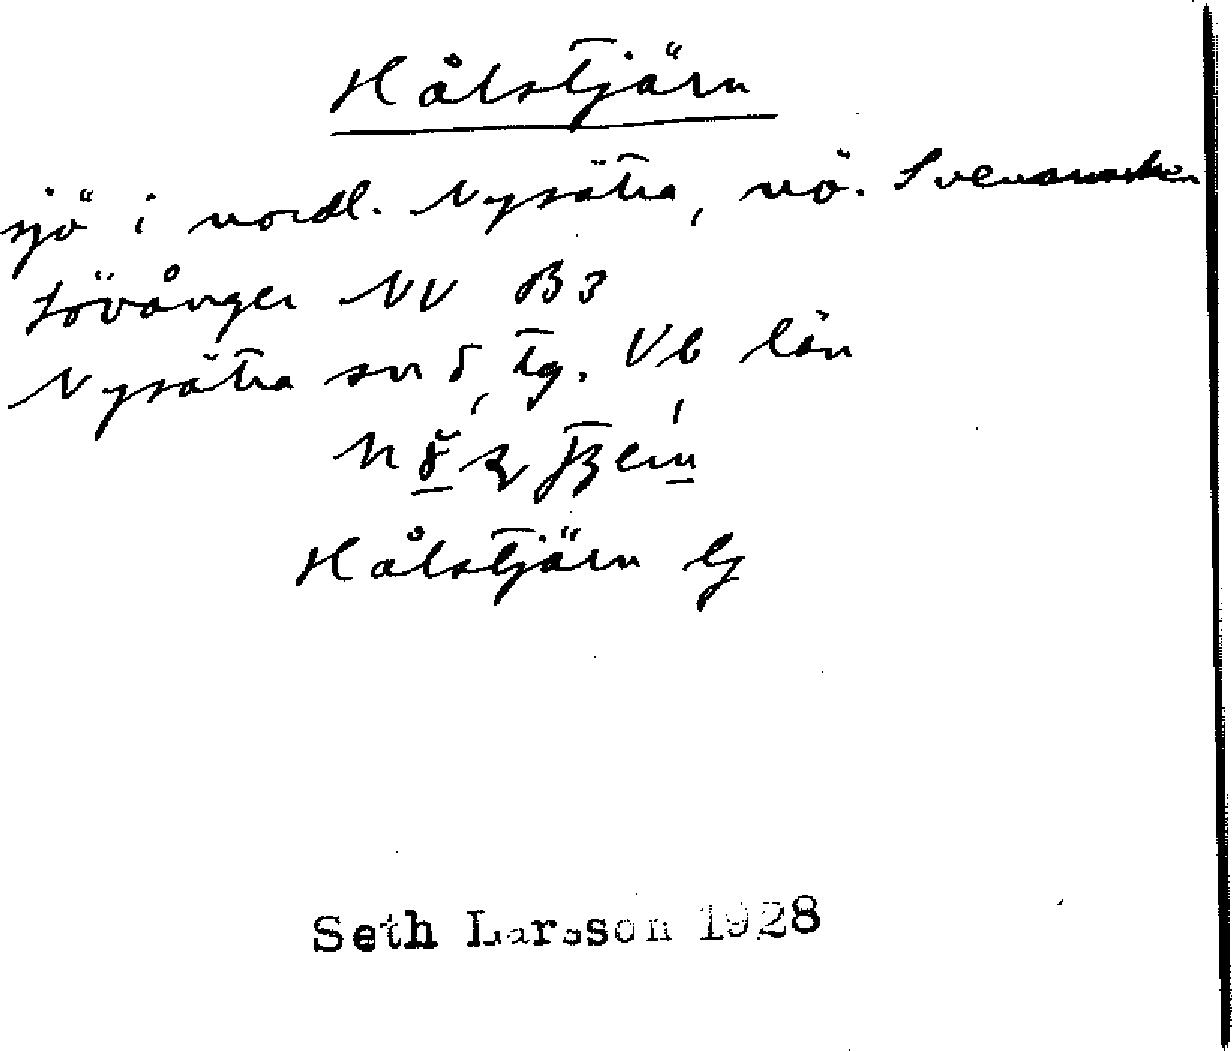 Hålstjärn
sjö i nordl. Nysätra, nö. Svenamarken
Lövånger NV B3
Nysätra sn, tg. Vb län
Hålstjärn lj
Seth Larsson 1928